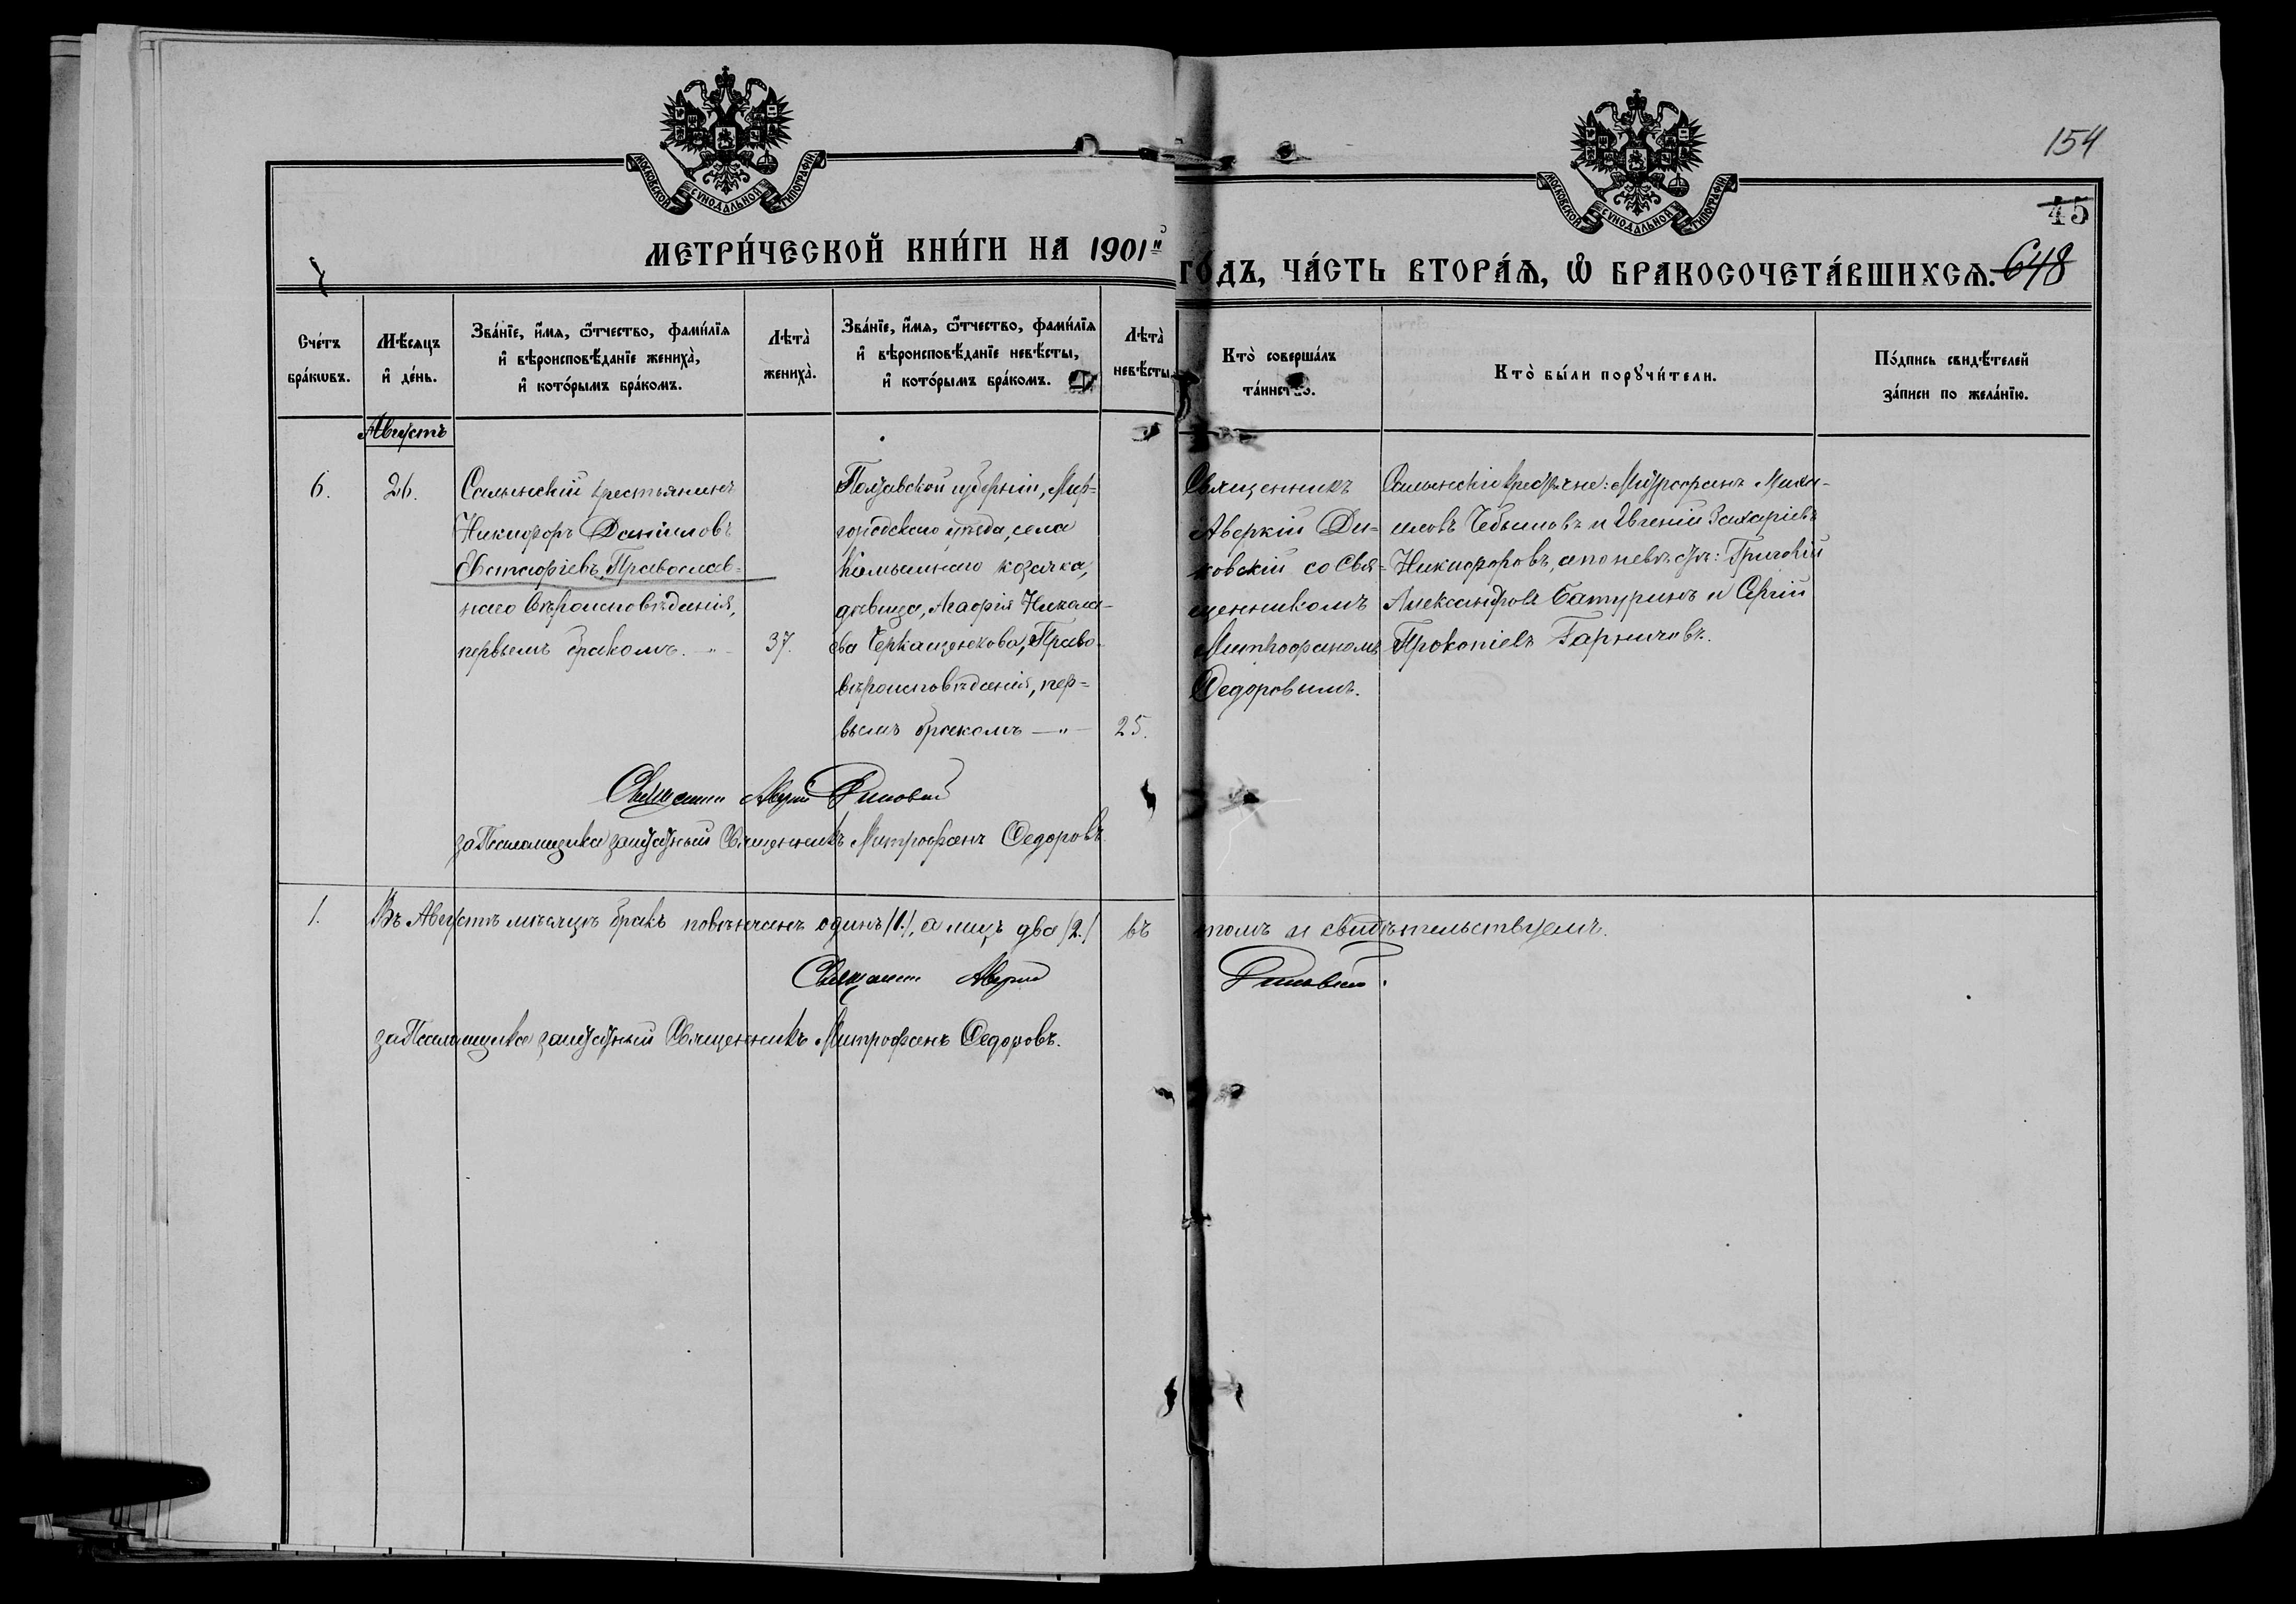 154
45
МОСКОВСКОЙ СѴНОДАЛЬНОЙ ТИПОГРАФІИ.
МОСКОВСКОЙ СѴНОДАЛЬНОЙ ТИПОГРАФІИ.
МЕТРИ́ЧЕСКОЙ КНИ́ГИ НА 1901й ГО́ДЪ, ЧА́СТЬ ВТОРА́Ѧ, Ѡ҆ БРАКОСОЧЕТА́ВШИХСѦ. 648
Сче́тъ
бра́кѡвъ.
Мѣ́сяцъ
и҆ де́нь.
Зва́нїе, и҆́мѧ, ѻ҆́тчество, фами́лїѧ
и҆ вѣроисповѣ́данїе женихà,
и҆ кото́рымъ бра́комъ.
Лѣта̀
жениха̀.
Зва́нїе, и҆́мѧ, ѻ҆́тчество, фами́лїѧ
и҆ вѣроисповѣ́данїе невѣ́сты,
и҆ кото́рымъ бра́комъ.
Лѣта̀
невѣ́сты
Кто̀ соверша́лъ
та́инство.
Кто̀ бы́ли порꙋчи́тели.
По́дпись свидѣ́телей
за́писи по жела́нїю.
Августъ
6.
26.
крестьянинъ
Никифоръ Даніиловъ
Евстафіевъ, Православ-
наго вѣроисповѣданія,
первымъ бракомъ. —"—
37.
Полтавской губерніи, Мир-
городскаго уѣзда, села
козачка,
дѣвица, Агафія Никола-
ева Черкащенкова, Право-
вѣроисповѣданія, пер-
вымъ бракомъ —"—
25.
Священникъ
Аверкій Ди-
ковскій со Свя-
щенникомъ
Митрофаномъ
Ѳедоровымъ.
крестьяне: Митрофанъ Миха-
иловъ и Евгеній Захаріевъ
Никифоровъ, а по невѣстѣ: Григорій
Александровъ Батуринъ и Сергій
Прокопіевъ Гарничевъ.
Священникъ Аверкій Диковскій
за Псаломщика заштатный Священникъ Митрофанъ Ѳедоровъ.
1.
Въ Августѣ мѣсяцѣ бракъ повѣнчанъ одинъ /1./, а лицъ два /2./ въ томъ и свидѣтельствуемъ.
Священникъ Аверкій Диковскій.
за Псаломщика заштатный Священникъ Митрофанъ Ѳедоровъ.